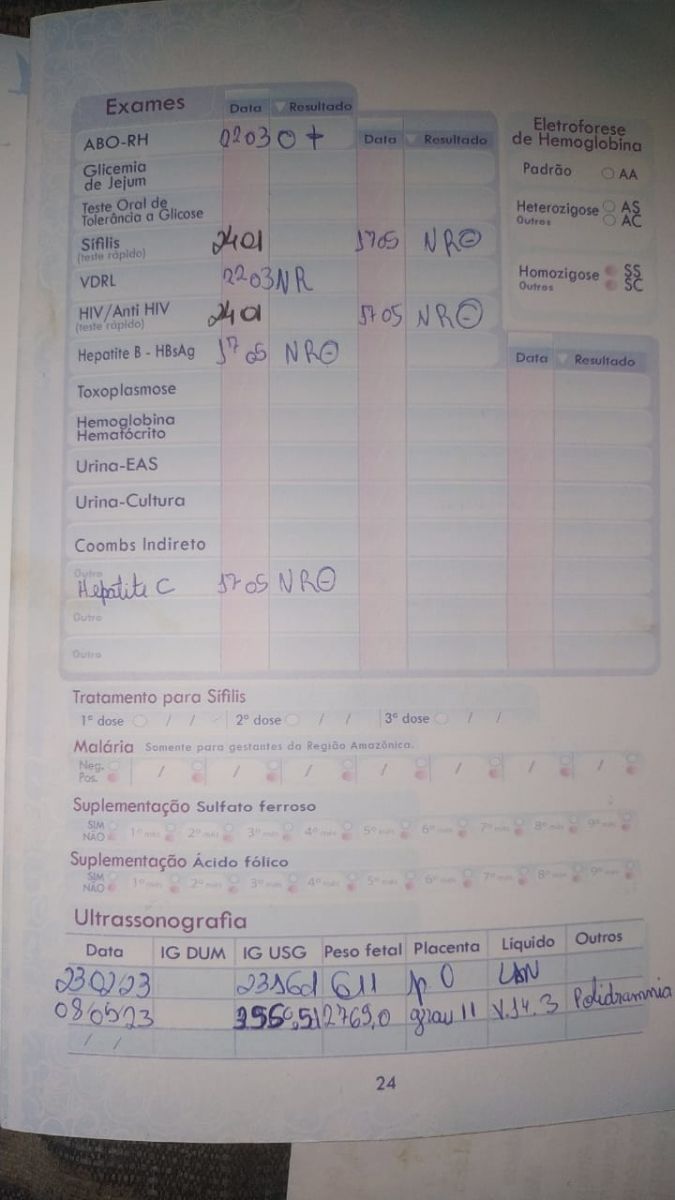 Exames Data Resultado
ABO-RH 2203 O+ Data Resultado
Glicemia
de Jejum
Teste Oral de
Tolerância a Glicose
Sífilis 2401 1705 NR⊖
(teste rápido)
VDRL 2203 NR
HIV/Anti HIV 2401 1705 NR⊖
(teste rápido)
Hepatite B - HBsAg 1705 NR⊖
Toxoplasmose
Hemoglobina
Hematócrito
Urina-EAS
Urina-Cultura
Coombs Indireto
Outro
Hepatite C 1705 NR⊖
Outro
Outro
Eletroforese
de Hemoglobina
Padrão AA
Heterozigose AS
Outros AC
Homozigose SS
Outros SC
Data Resultado
Tratamento para Sífilis
1º dose / / 2º dose / / 3º dose / /
Malária Somente para gestantes da Região Amazônica.
Neg. / / / / / / /
Pos.
Suplementação Sulfato ferroso
SIM
NÃO 1º mês 2º mês 3º mês 4º mês 5º mês 6º mês 7º mês 8º mês 9º mês
Suplementação Ácido fólico
SIM
NÃO 1º mês 2º mês 3º mês 4º mês 5º mês 6º mês 7º mês 8º mês 9º mês
Ultrassonografia
Data IG DUM IG USG Peso fetal Placenta Líquido Outros
230223 23s6d 611 p 0 LAN
080523 2765,0 grau II V.14.3 Polidramnia
/ /
24